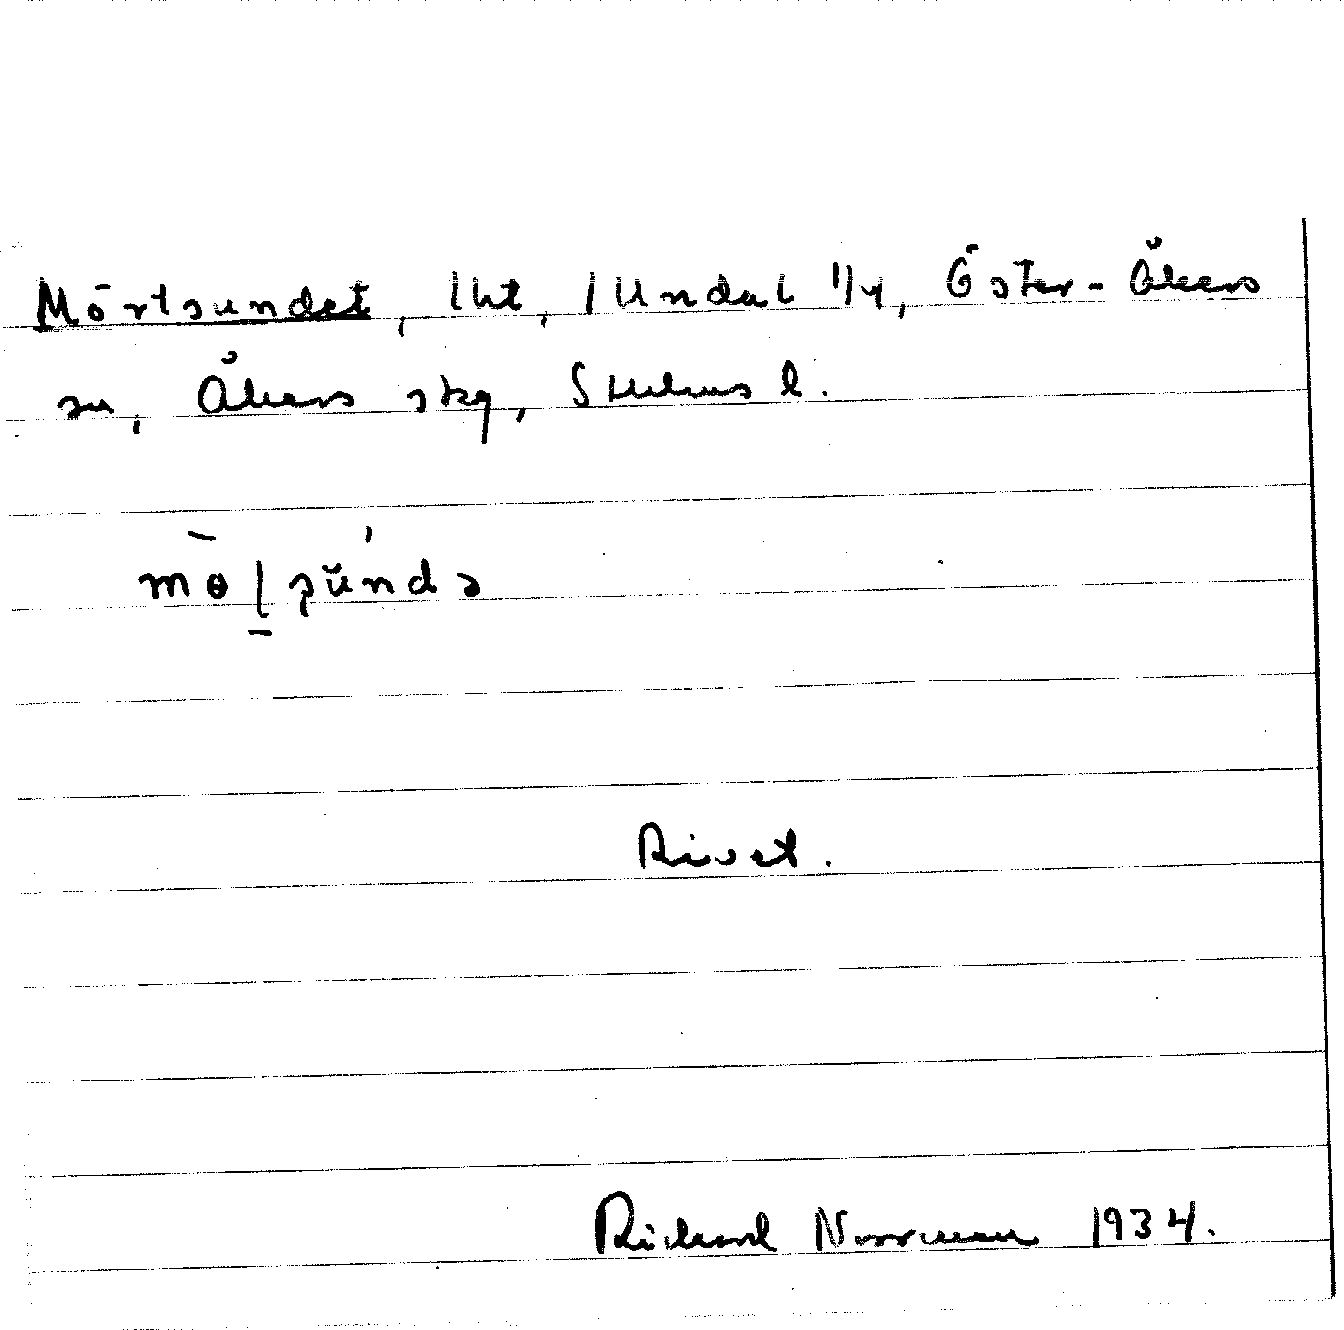 Mörtsundet, lht, Isundal 1/4, Öster-Åkers
sn, Åkers skg, Sthlms l.
Rivet.
Richard Norrman 1934.